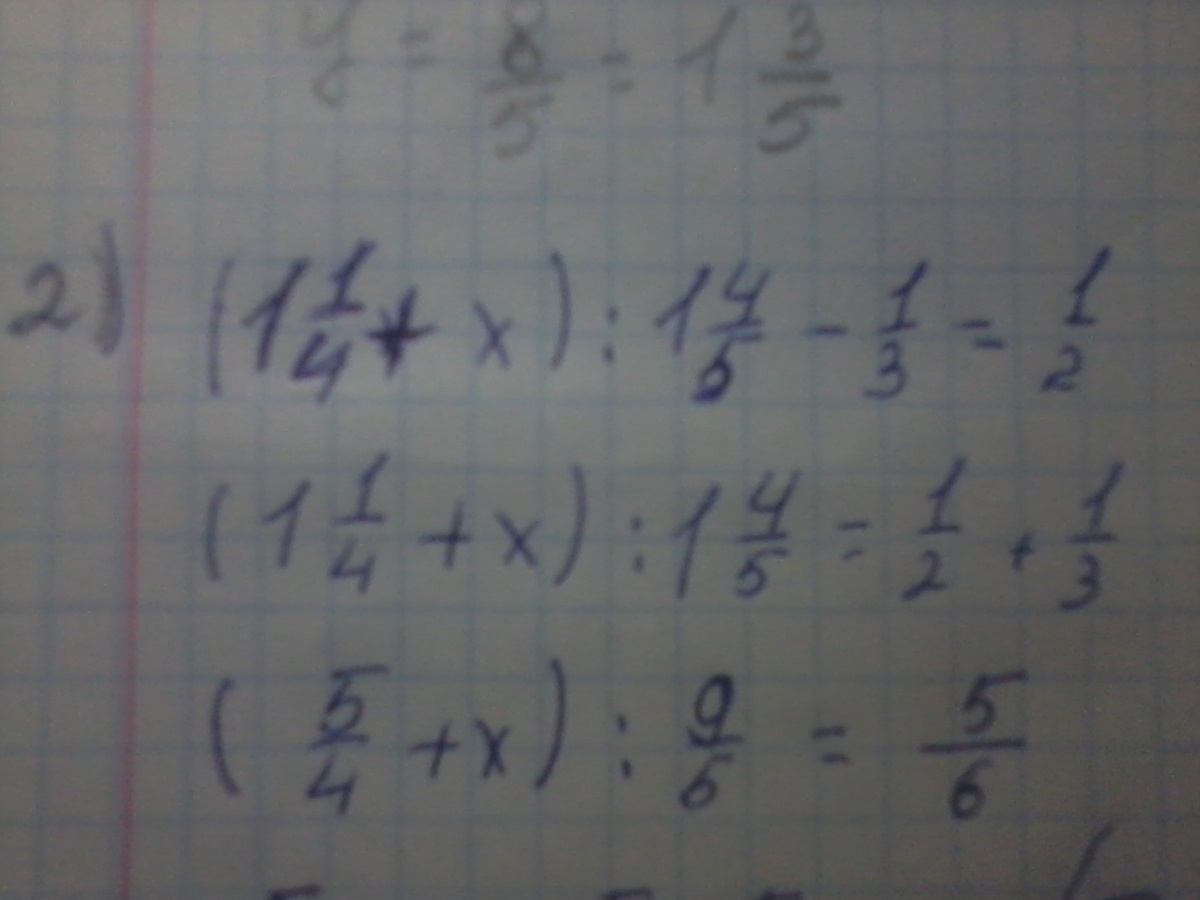 y = 8/5 = 1 3/5
2) (1 1/4 + x) : 1 4/5 - 1/3 = 1/2
(1 1/4 + x) : 1 4/5 = 1/2 + 1/3
(5/4 + x) : 9/5 = 5/6